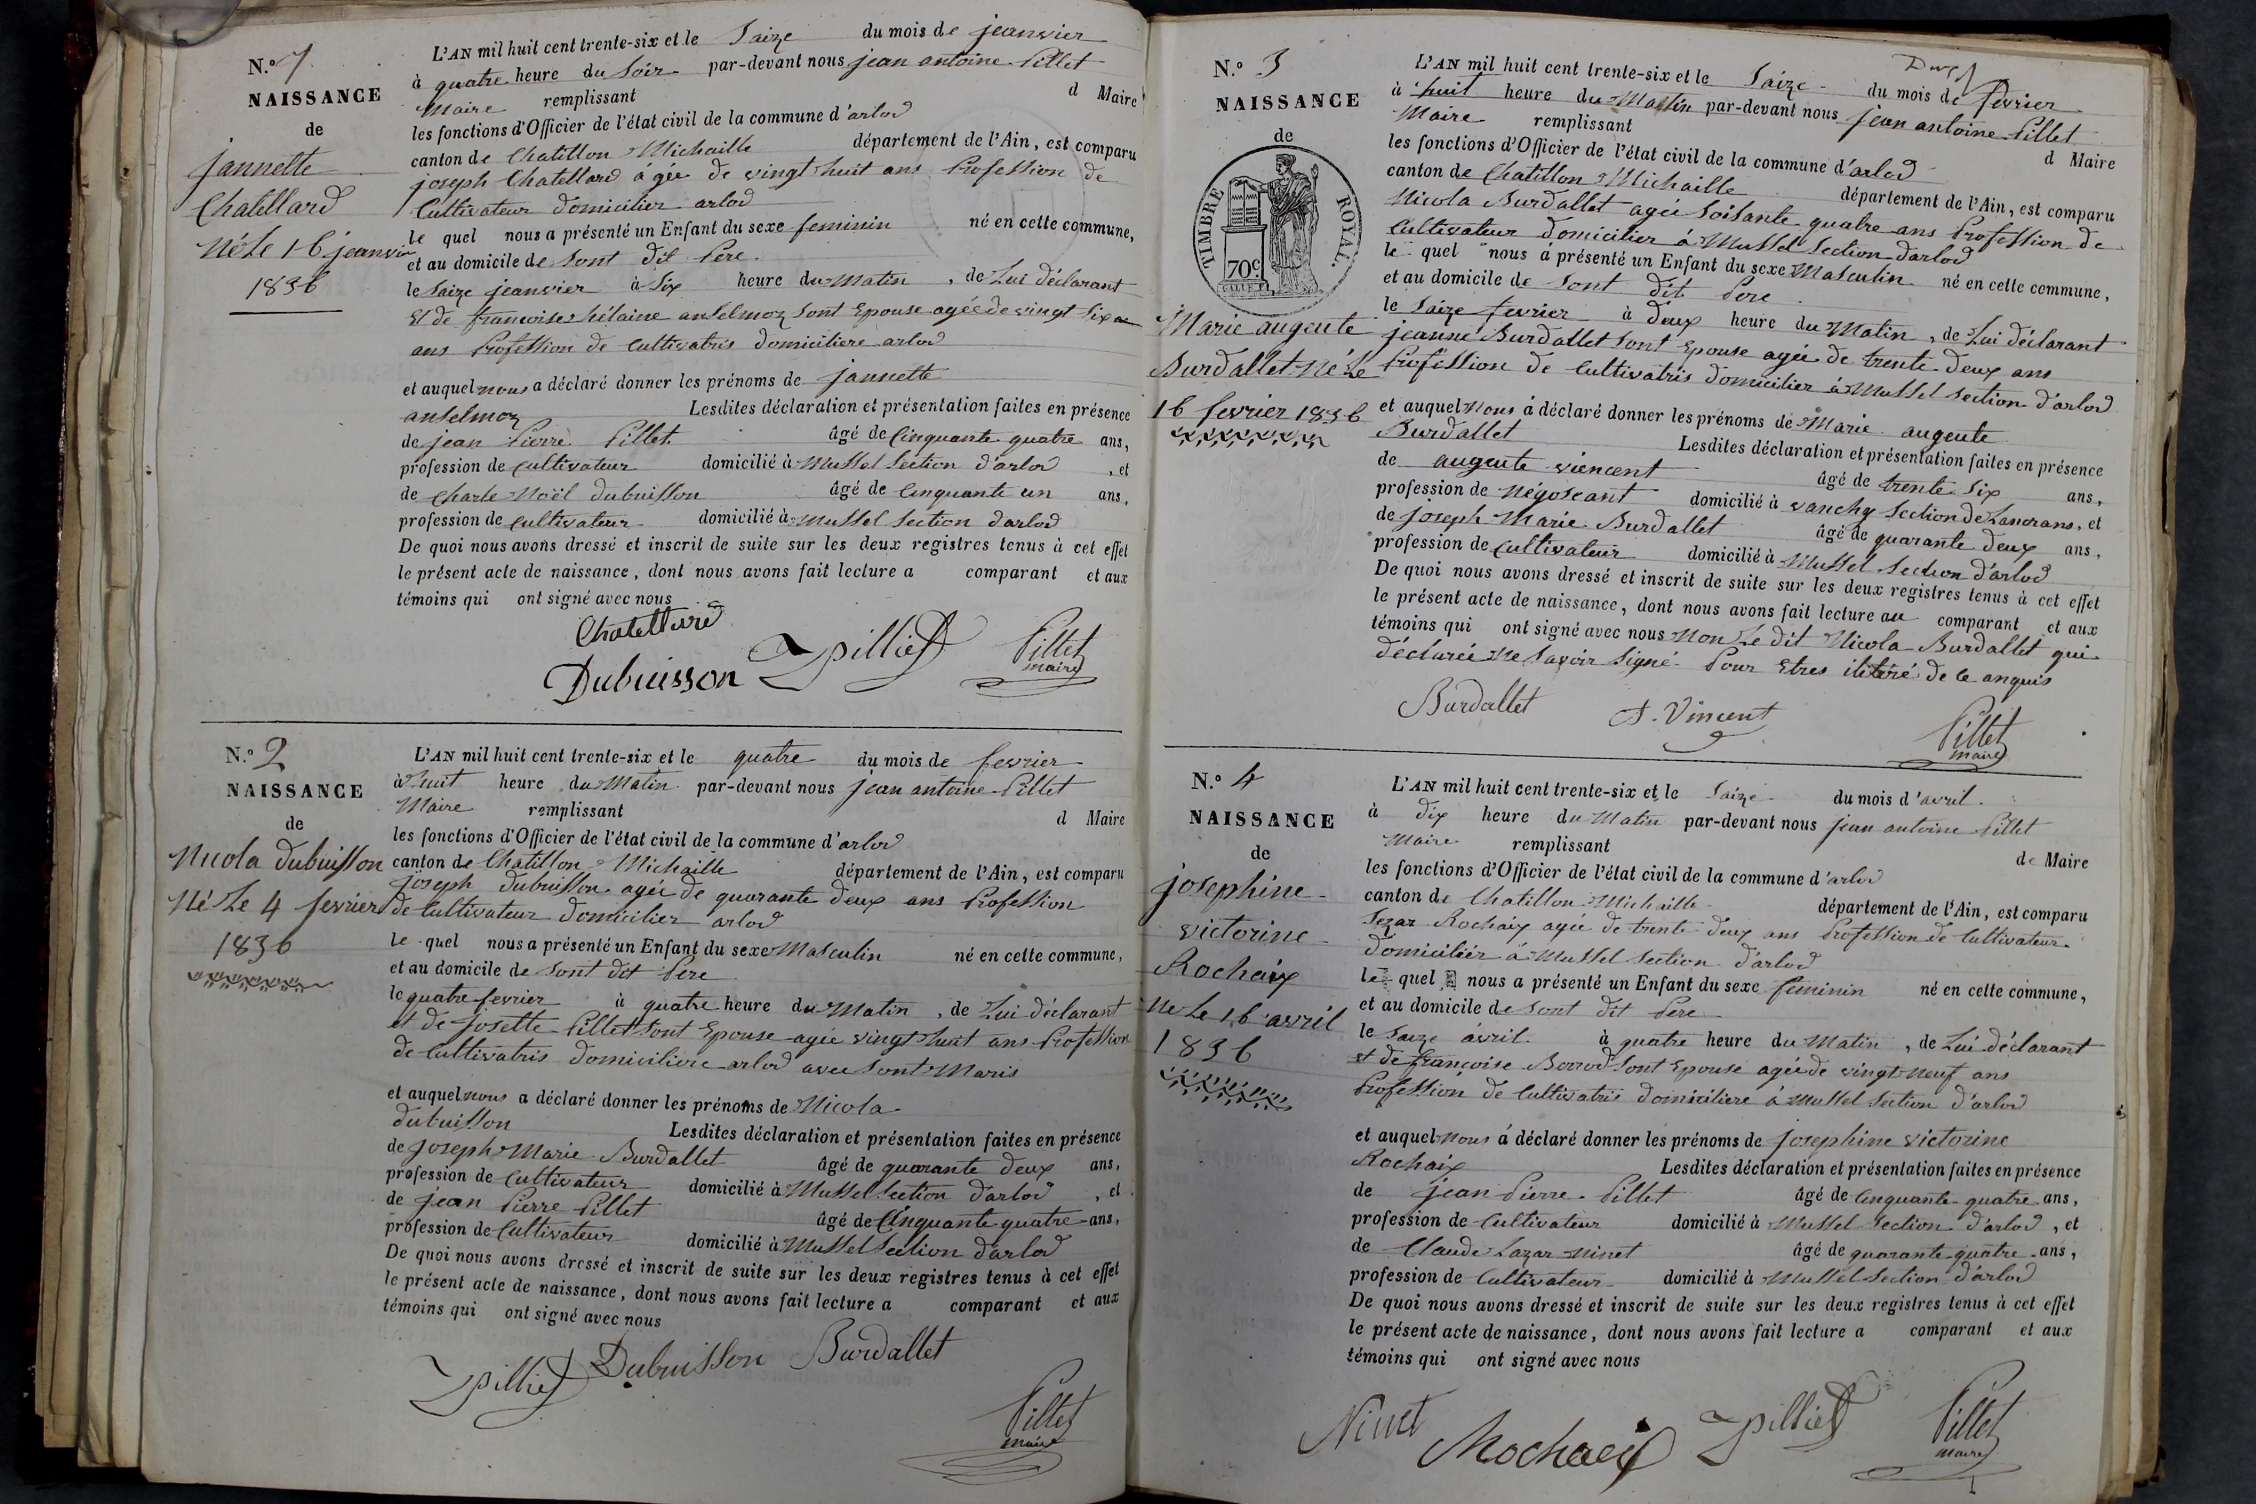 N.º 1
NAISSANCE
de
jannette
Chatellard
Né Le 16 jeanvier
1836
L'AN mil huit cent trente-six et le Saize du mois de jeanvier
à quatre heure du Soir par-devant nous jean antoine Pillet
Maire remplissant d Maire
les fonctions d'Officier de l'état civil de la commune d'arlod
canton de Chatillon Michaille département de l'Ain, est comparu
joseph Chatellard agée de vingt huit ans Profession de
Cultivateur domicilier arlod
le quel nous a présenté un Enfant du sexe feminin né en cette commune,
et au domicile de Sont dit Pere
le Saize jeanvier à Six heure du Matin, de Lui déclarant
Et de francoise hélaine anselmoz Sont Epouse agée de vingt Six
ans Profession de Cultivatris domiciliere arlod
et auquel nous a déclaré donner les prénoms de jannette
anselmoz Lesdites déclaration et présentation faites en présence
de jean Pierre Pillet âgé de Cinquante quatre ans,
profession de Cultivateur domicilié à Mussel Section d'arlod, et
de Charle Noël dubuisson âgé de Cinquante un ans,
profession de Cultivateur domicilié à Mussel Section d'arlod
De quoi nous avons dressé et inscrit de suite sur les deux registres tenus à cet effet
le présent acte de naissance, dont nous avons fait lecture a comparant et aux
témoins qui ont signé avec nous
Chatellard
Dubuisson JPilliet Pillet
maire
N.º 2
NAISSANCE
de
Nicola dubuisson
Né Le 4 fevrier
1836
L'AN mil huit cent trente-six et le quatre du mois de fevrier
à huit heure du Matin par-devant nous jean antoine Pillet
Maire remplissant d Maire
les fonctions d'Officier de l'état civil de la commune d'arlod
canton de Chatillon Michaille département de l'Ain, est comparu
joseph dubuisson agée de quarante deux ans Profession
de Cultivateur domicilier arlod
le quel nous a présenté un Enfant du sexe Masculin né en cette commune,
et au domicile de Sont dit Pere
le quatre fevrier à quatre heure du Matin, de Lui déclarant
et de josette Pillet Sont Epouse agée vingt huit ans Profession
de Cultivatris domiciliere arlod avec Sont Maris
et auquel nous a déclaré donner les prénoms de Nicola
dubuisson Lesdites déclaration et présentation faites en présence
de joseph Marie Burdallet âgé de quarante deux ans,
profession de Cultivateur domicilié à Mussel Section d'arlod, et
de jean Pierre Pillet âgé de Cinquante quatre ans,
profession de Cultivateur domicilié à Mussel Section d'arlod
De quoi nous avons dressé et inscrit de suite sur les deux registres tenus à cet effet
le présent acte de naissance, dont nous avons fait lecture a comparant et aux
témoins qui ont signé avec nous
JPilliet Dubuisson Burdallet
Pillet
maire
N.º 3
NAISSANCE
de
TIMBRE ROYAL.
70c
Marie augente
Burdallet Né Le
16 fevrier 1836
L'AN mil huit cent trente-six et le Saize du mois de fevrier
à huit heure du Matin par-devant nous jean antoine Pillet
Maire remplissant d Maire
les fonctions d'Officier de l'état civil de la commune d'arlod
canton de Chatillon Michaille département de l'Ain, est comparu
Nicola Burdallet agée Soisante quatre ans Profession de
Cultivateur domicilier à Mussel Section d'arlod
le quel nous à présenté un Enfant du sexe Masculin né en cette commune,
et au domicile de Sont dit Pere
le Saize fevrier à deux heure du Matin, de Lui déclarant
jeanne Burdallet Sont Epouse agée de trente deux ans
Profession de Cultivatris domicilier à Mussel Section d'arlod
et auquel nous à déclaré donner les prénoms de Marie augente
Burdallet Lesdites déclaration et présentation faites en présence
de augente viencent âgé de trente Six ans,
profession de Négoseant domicilié à vanchy Section de Lancrans, et
de joseph Marie Burdallet âgé de quarante deux ans,
profession de Cultivateur domicilié à Mussel Section d'arlod
De quoi nous avons dressé et inscrit de suite sur les deux registres tenus à cet effet
le présent acte de naissance, dont nous avons fait lecture au comparant et aux
témoins qui ont signé avec nous Non Le dit Nicola Burdallet qui
déclarée ne Savoir Signé Pour Etres ilitéré de ce anquis
Burdallet A. Vincent Pillet
maire
N.º 4
NAISSANCE
de
josephine
victorine
Rochaix
Ne Le 16 avril
1836
L'AN mil huit cent trente-six et le Saize du mois d'avril
à dix heure du Matin par-devant nous jean antoine Pillet
Maire remplissant de Maire
les fonctions d'Officier de l'état civil de la commune d'arlod
canton de Chatillon Michaille département de l'Ain, est comparu
Sezar Rochaix agée de trente deux ans Profession de Cultivateur
domicilièr à Mussel Section d'arlod
le quel nous a présenté un Enfant du sexe feminin né en cette commune,
et au domicile de Sont dit Pere
le Saize avril à quatre heure du Matin, de Lui déclarant
et de francoise Borrod Sont Epouse agée de vingt Neuf ans
Profession de Cultivatris domiciliere à Mussel Section d'arlod
et auquel nous à déclaré donner les prénoms de josephine victorine
Rochaix Lesdites déclaration et présentation faites en présence
de jean Pierre Pillet âgé de Cinquante quatre ans,
profession de Cultivateur domicilié à Mussel Section d'arlod, et
de Claude Lazar Ninet âgé de quarante quatre ans,
profession de Cultivateur domicilié à Mussel Section d'arlod
De quoi nous avons dressé et inscrit de suite sur les deux registres tenus à cet effet
le présent acte de naissance, dont nous avons fait lecture a comparant et aux
témoins qui ont signé avec nous
Ninet Rochaix JPilliet Pillet
maire